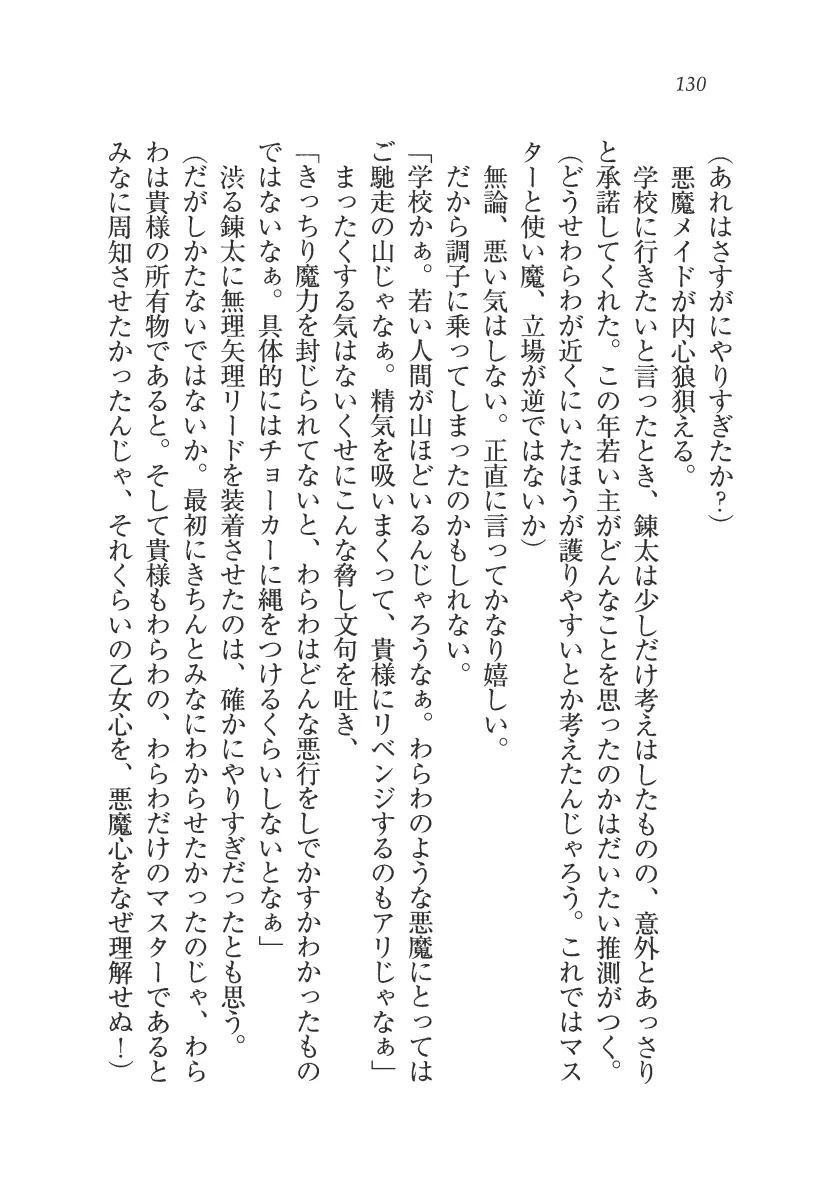 130
（あれはさすがにやりすぎたか？）
悪魔メイドが内心狼狽える。
学校に行きたいと言ったとき、錬太は少しだけ考えはしたものの、意外とあっさり
と承諾してくれた。この年若い主がどんなことを思ったのかはだいたい推測がつく。
（どうせわらわが近くにいたほうが護りやすいとか考えたんじゃろう。これではマス
ターと使い魔、立場が逆ではないか）
無論、悪い気はしない。正直に言ってかなり嬉しい。
だから調子に乗ってしまったのかもしれない。
「学校かぁ。若い人間が山ほどいるんじゃろうなぁ。わらわのような悪魔にとっては
ご馳走の山じゃなぁ。精気を吸いまくって、貴様にリベンジするのもアリじゃなぁ」
まったくする気はないくせにこんな脅し文句を吐き、
「きっちり魔力を封じられてないと、わらわはどんな悪行をしでかすかわかったもの
ではないなぁ。具体的にはチョーカーに縄をつけるくらいしないとなぁ」
渋る錬太に無理矢理リードを装着させたのは、確かにやりすぎだったとも思う。
（だがしかたないではないか。最初にきちんとみなにわからせたかったのじゃ、わら
わは貴様の所有物であると。そして貴様もわらわの、わらわだけのマスターであると
みなに周知させたかったんじゃ、それくらいの乙女心を、悪魔心をなぜ理解せぬ！）